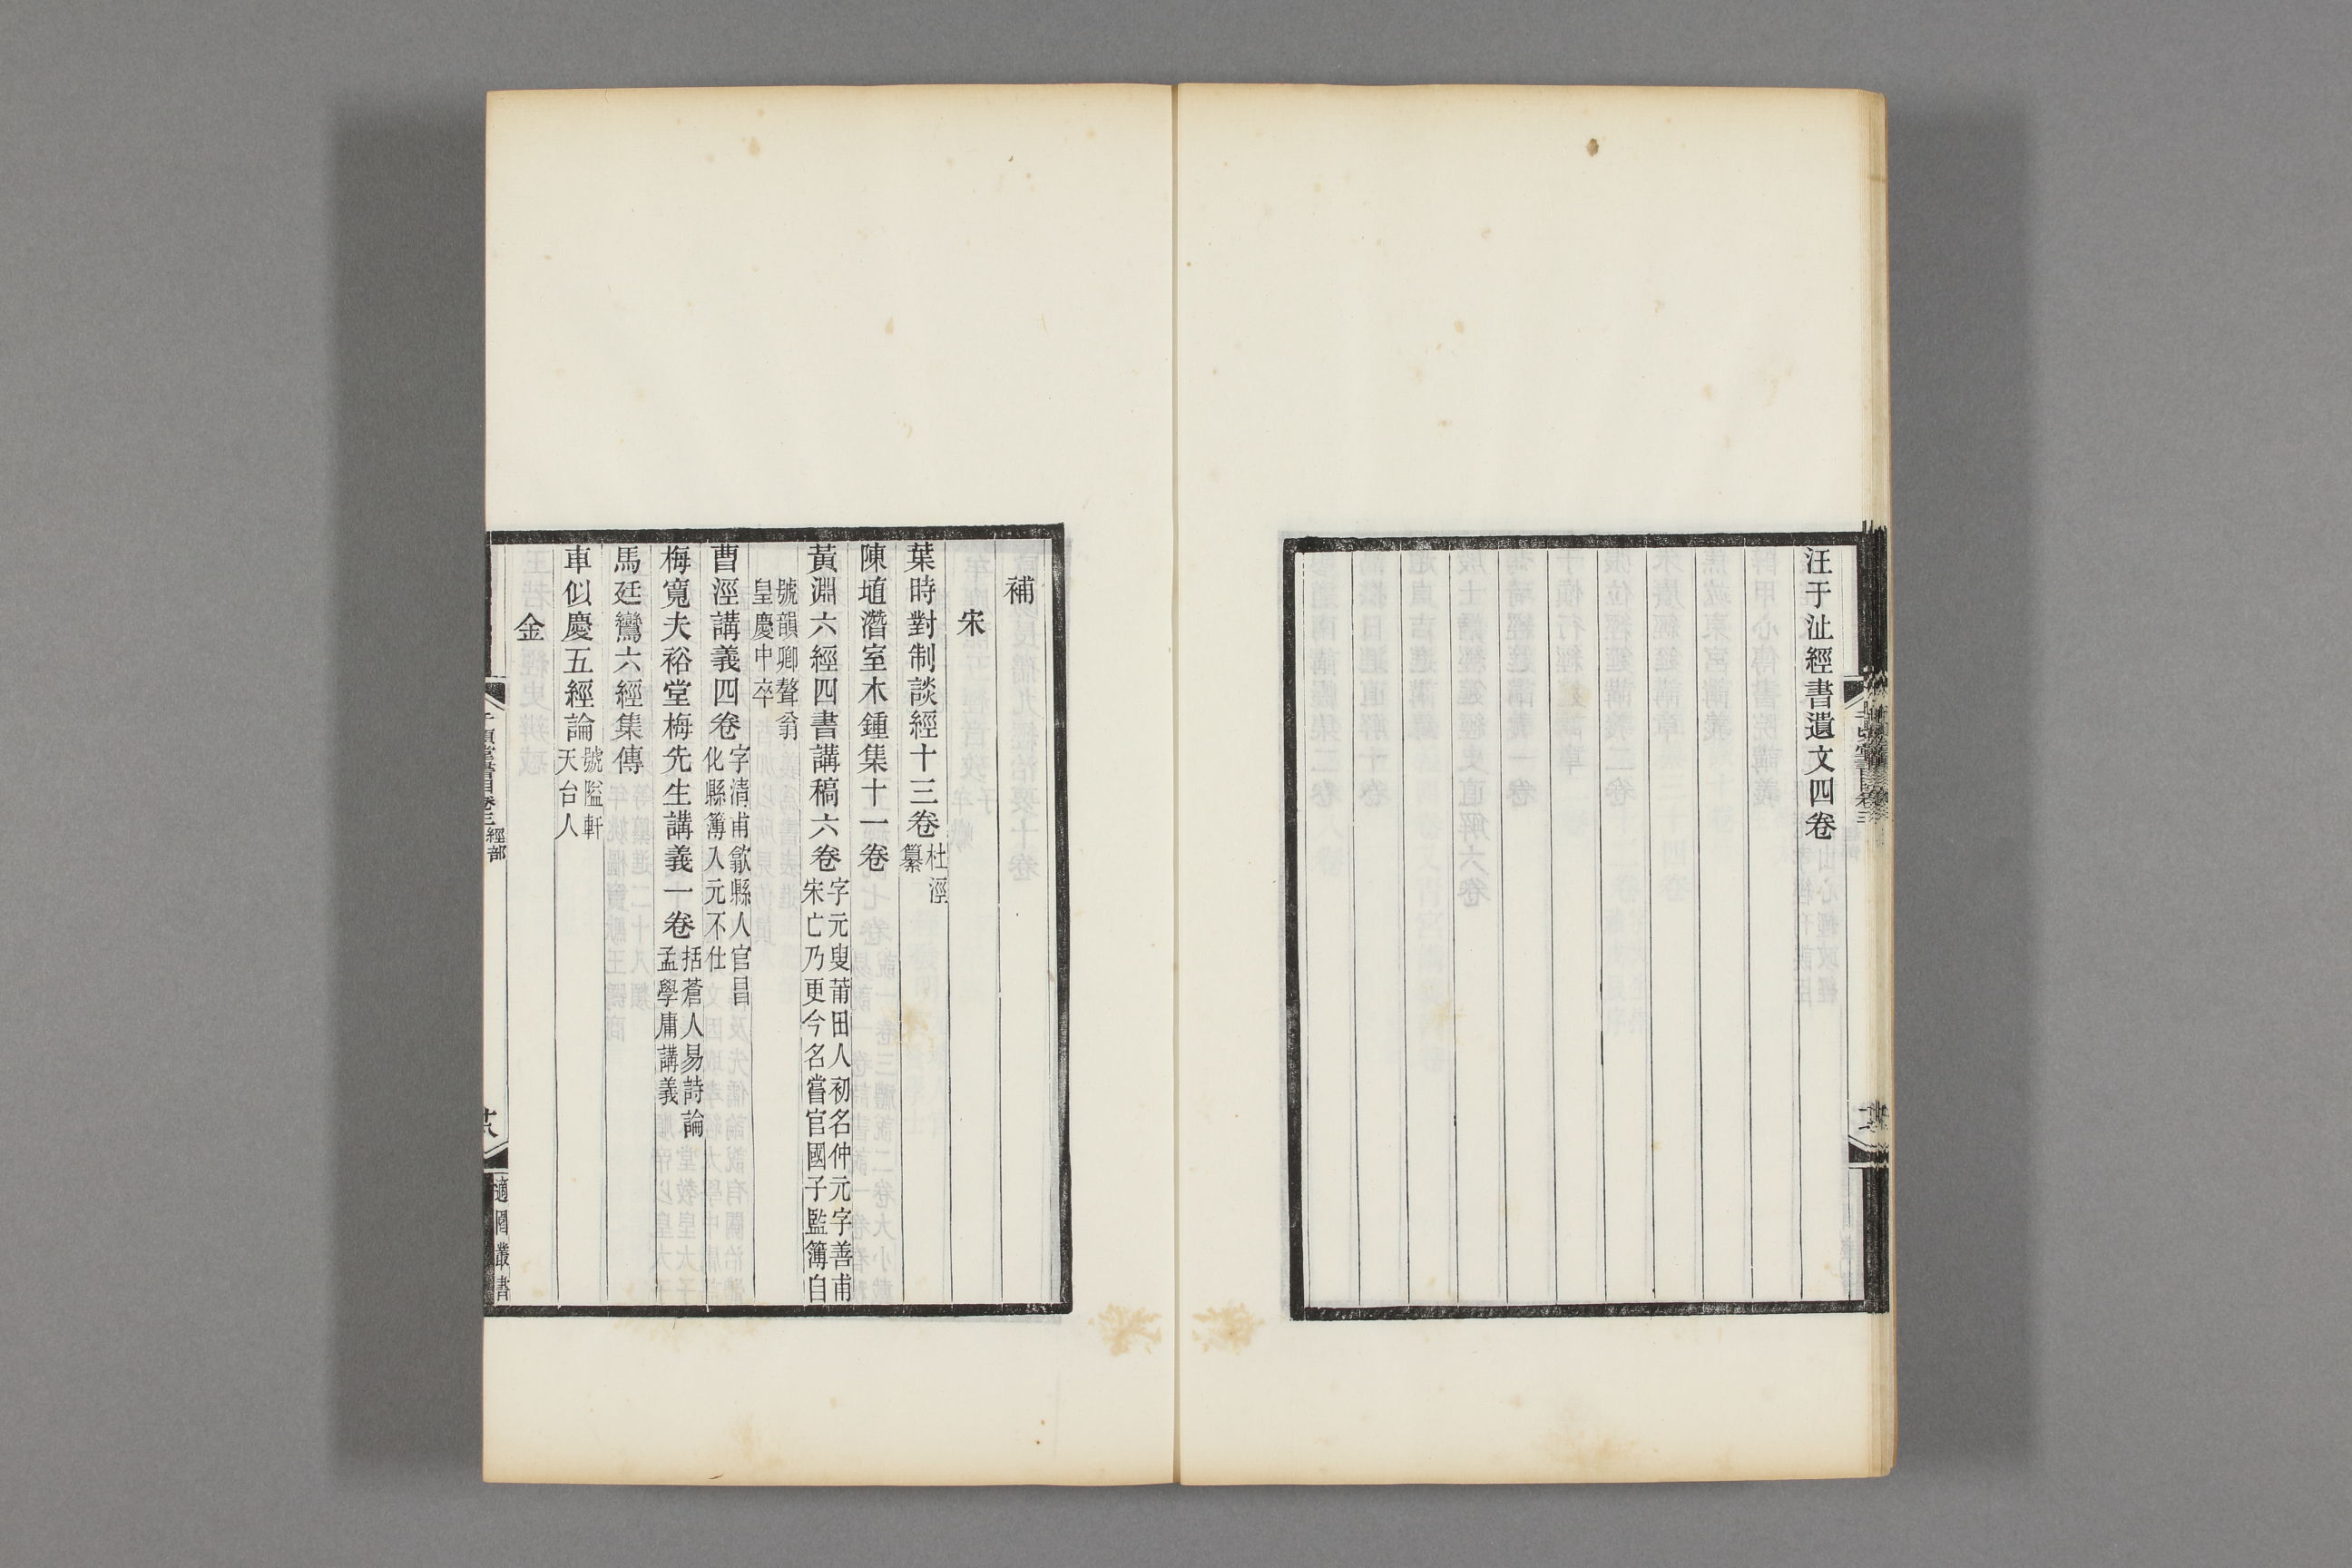 汪于沚經書遺文四卷
補
宋
葉時對制談經十三卷杜涇纂
陳埴潛室木鍾集十一卷
黃淵六經四書講稿六卷字元叟莆田人初名仲元字善甫宋亡乃更今名嘗官國子監簿自
號韻卿聱翁皇慶中卒
曹涇講義四卷字清甫歙縣人官昌化縣簿入元不仕
梅寬夫裕堂梅先生講義一卷括蒼人易詩論孟學庸講義
馬廷鸞六經集傳
車似慶五經論號隘軒天台人
金
千頃堂書目卷三經部
廿八
適園叢書